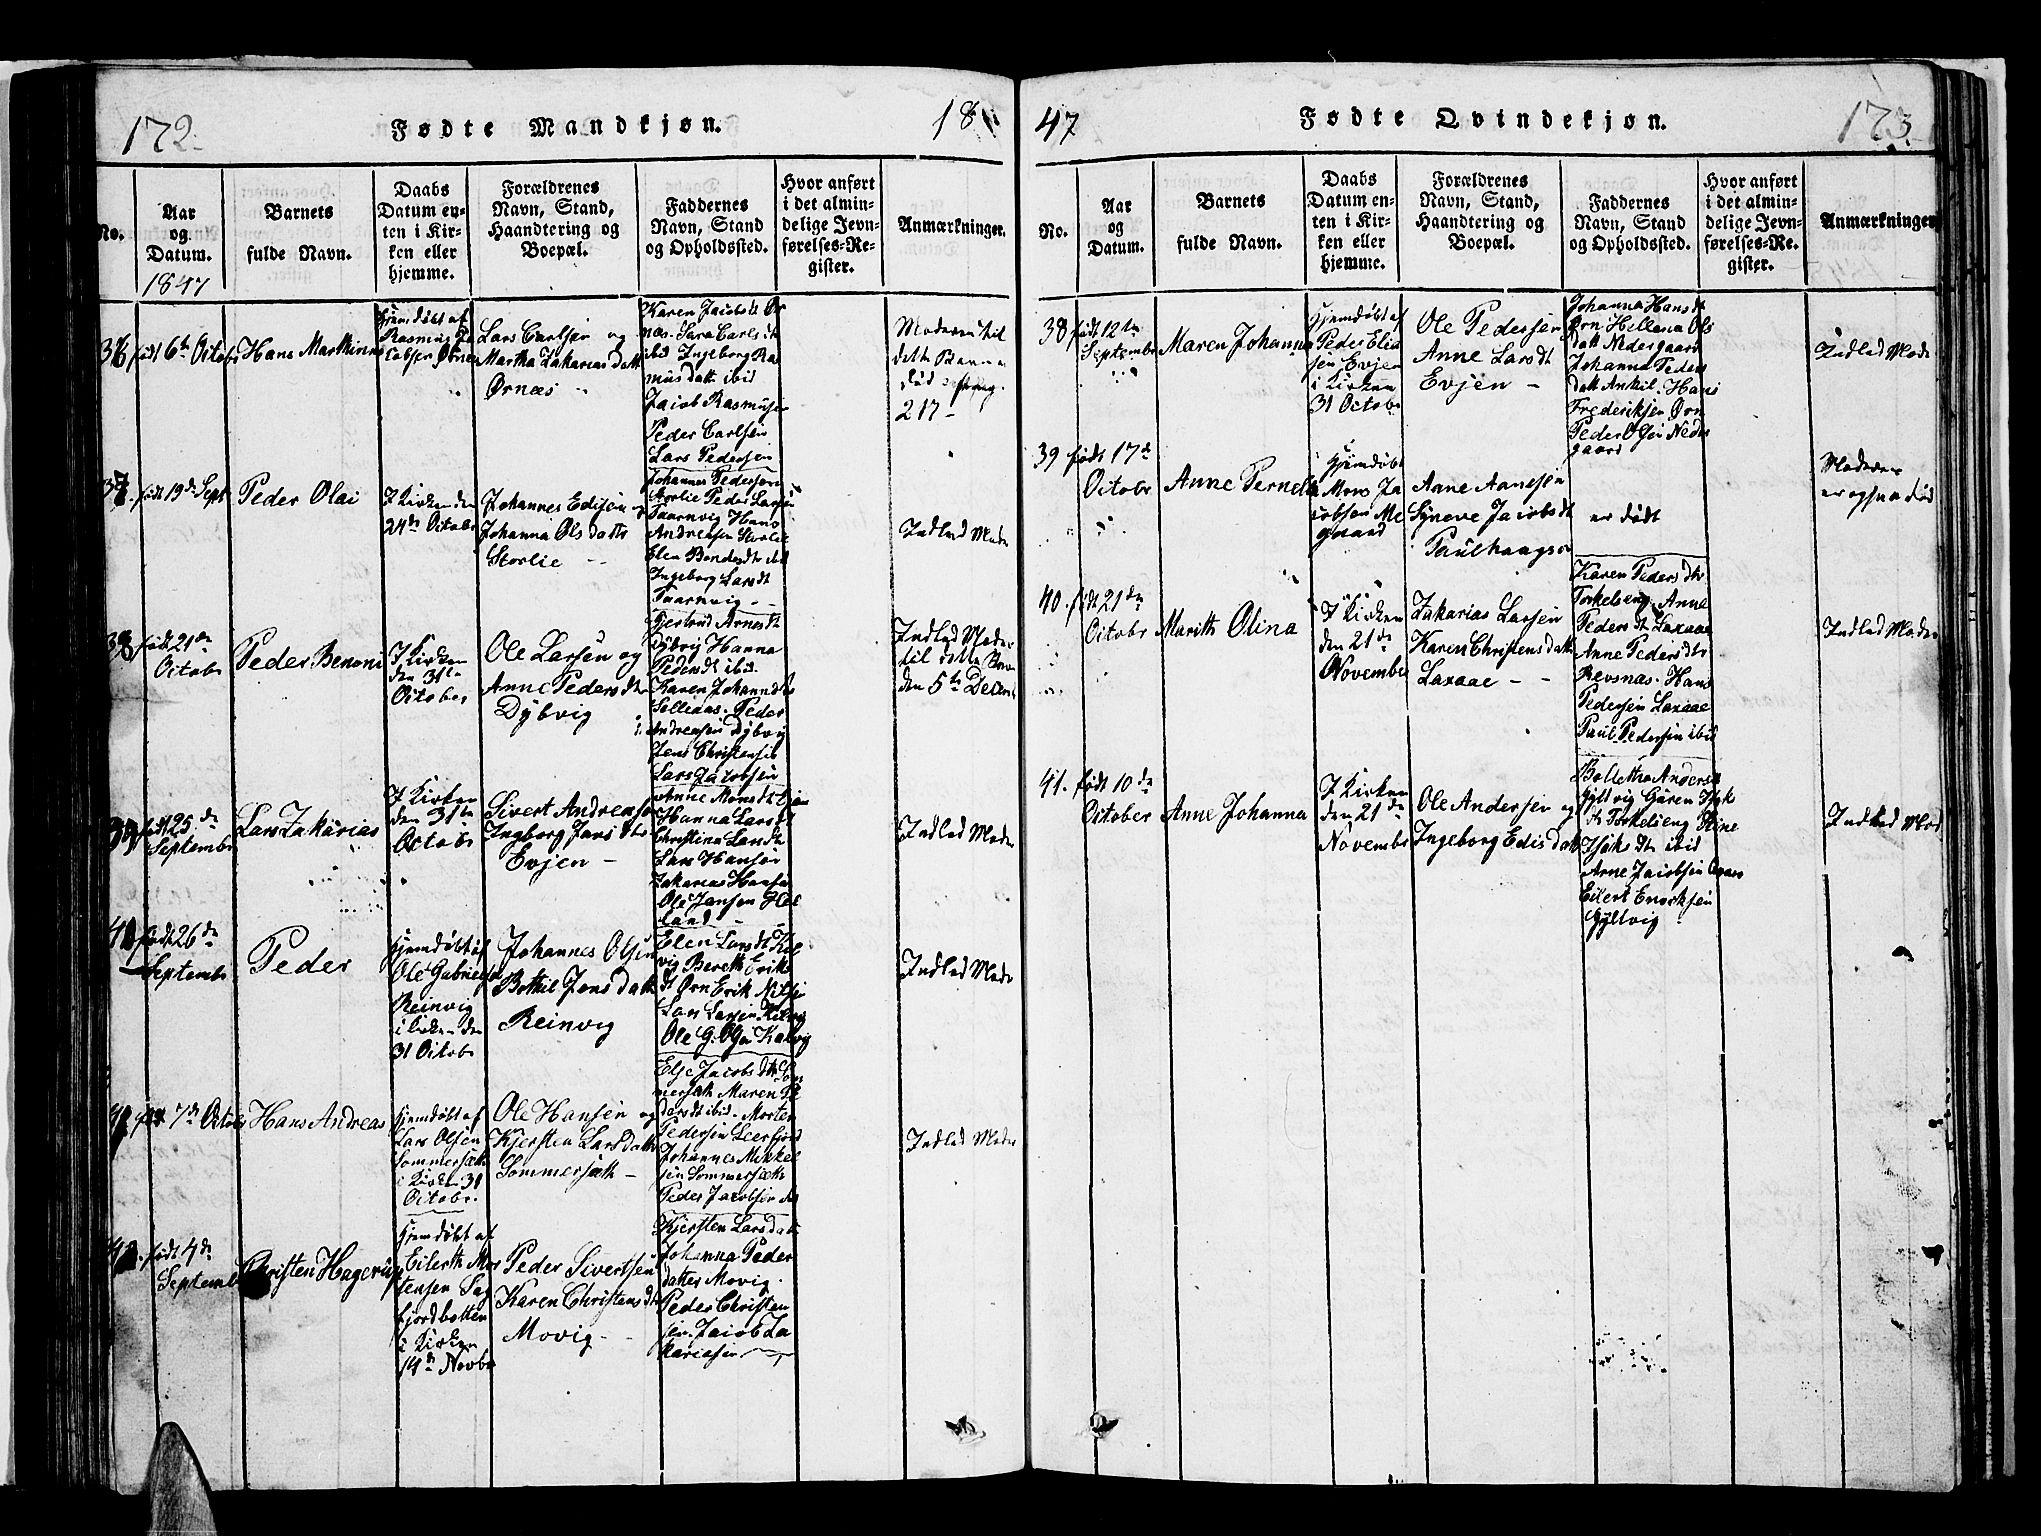 172.
Fødte Mandkjøn.
18
No.
Aar
og
Datum.
1847
Barnets
fulde Navn.
Daabs
Datum en-
ten i Kir-
ken eller
hjemme.
Forældrenes
Navn, Stand,
Haandtering og
Boepæl.
Faddernes
Navn, Stand
og Opholdssted.
Hvor anført
i det almin-
delige Jevn-
førelses-Re-
gister.
Anmærkninger.
36
født 6te Octobr
Hans Marthinus
Hjemdøbt af
Rasmus Ja
cobsen Ørnes
Lars Carlsen og
Martha Zakarias datt
Ørnæs
Karen Jacobsdt Ør
næs. Sara Carlsdt
ibid Ingeborg Ras
musdatt ibid
Jacob Rasmusen
Peder Carlsen
Lars Pedersen
Moderen til
dette Barn
217-
37
født 19de Sept
Peder Olai
I Kirken den
24de Octobr
Johannes Edisen og
Johanna Olsdattr
Storlie
Johannes Pedersen
Storlie Peder Larsen
Taarnvig Hans
Andreasen Storlie
Elen Bendesdt ibd
Ingeborg Larsdt
Taarnvig
Indled Moder
38
født 21de
Octobr
Peder Benoni
I Kirken
den 31te
October
Ole Larsen og
Anne Pedersdtr
Dybvig
Gjertrud Arnesdt
Dybvig Hanna
Pedersdt ibid.
Karen Johannsdtr
Selleaas. Peder
Andreasen Dybvig
Jens Christensen
Lars Jacobsen
Indled Moder
til dette Barn
den 5te Decem
39
født 25de
Septembr
Lars Zakarias
I Kirken
den 31te
Octobr
Sivert Andreasen
Ingborg Jansdtr
Evjen -
Anne Monsdt Evjen
Hanna Larsdt
Christina Larsdtr
Lars Hansen
Zakarias Hansen
Ole Jansen Hel
land
Indled Moder
40
født 26de
Septembr
Peder
Hjemdøbt af
Ole Gabrielsen
Reinvig
i Kirken den
31 Octobr
Johannes Olsen
Bothil Jensdatt
Reinvig
Elen Larsdt Kal
vig Bereth Eriks
dt Ørn Erik Nilsen
Lars Larsen Kalvig
Ole G. Olsen Kalvig
Indled Moder
41
født 7de Octobr
Hans Andreas
Hjemdøbt af
Lars Olsen
Sommersæth
i Kirken 31
Octobr.
Ole Hansen og
Kjersten Larsdattr
Sommersæth -
Else Jacobsdtr Som
mersæth Maren Pe
dersdt ibid. Morten
Pedersen Leerfjord
Johannes Mikkel
sen Sommersæth
Peder Jacobsen ibd
Indled Moder
42
født 4de
September
Christen Hagerup
Hjemdøbt af
Eilerth Mor
tensen Sag
fjordbotten
i Kirken
14de Novbr
Peder Sivertsen
Karen Christensdtr
Movig -
Kjersten Larsdatt
Johanna Peder
datter Movig.
Peder Christen
sen. Jacob Za
kariasen
47
Fødte Qvindekjøn.
173.
No.
Aar
og
Datum.
Barnets
fulde Navn.
Daabs
Datum en-
ten i Kir-
ken eller
hjemme.
Forældrenes
Navn, Stand,
Haandtering og
Boepæl.
Faddernes
Navn, Stand
og Opholdssted.
Hvor anført
i det almin-
delige Jevn-
førelses-Re-
gister.
Anmærkninger
38
født 12te
Septembr
Maren Johanna
Hjemdøbt af
Peder Elia
sen Evjen
i Kirken
31 Octobr
Ole Pedersen
Anne Larsdt
Evjen -
Johanna Hansdt
Ørn Hellena Ols
datt Nedergaard
Johanna Peders
datt Ankil. Hans
Frederiksen Ørn
Peder Olsen Neder
gaard
Indled Moder
39
født 17de
Octobr
Anne Pernella
Hjemdøbt
Mons Ja
cobsen Me
gaard
Arne Arnesen
Syneve Jacobsdt
Paulhaagen
er dødt
Moderen
er ogsaa død
40.
født 21de
Octobr
Marith Olina
I Kirken
den 21de
November
Zakarias Larsen
Karen Christensdatt
Laxaae - -
Karen Pedersdtr
Torkelseng. Anne
Pedersdt Laxaae
Anne Pedersdtr
Revsnæs. Hans
Pedersen Laxaae
Paul Pedersen ibid
Indled Moder
41.
født 10de
October
Anne Johanna
I Kirken
den 21de
Novembr
Ole Andersen og
Ingeborg Edisdatt
Bolletha Andersd
Gyltvig Guren Isak
dt Torkelseng Stine
Isaksdtr ibid
Arne Jacobsen
Eilert Enocksen
Gyltvig
Indled Mod